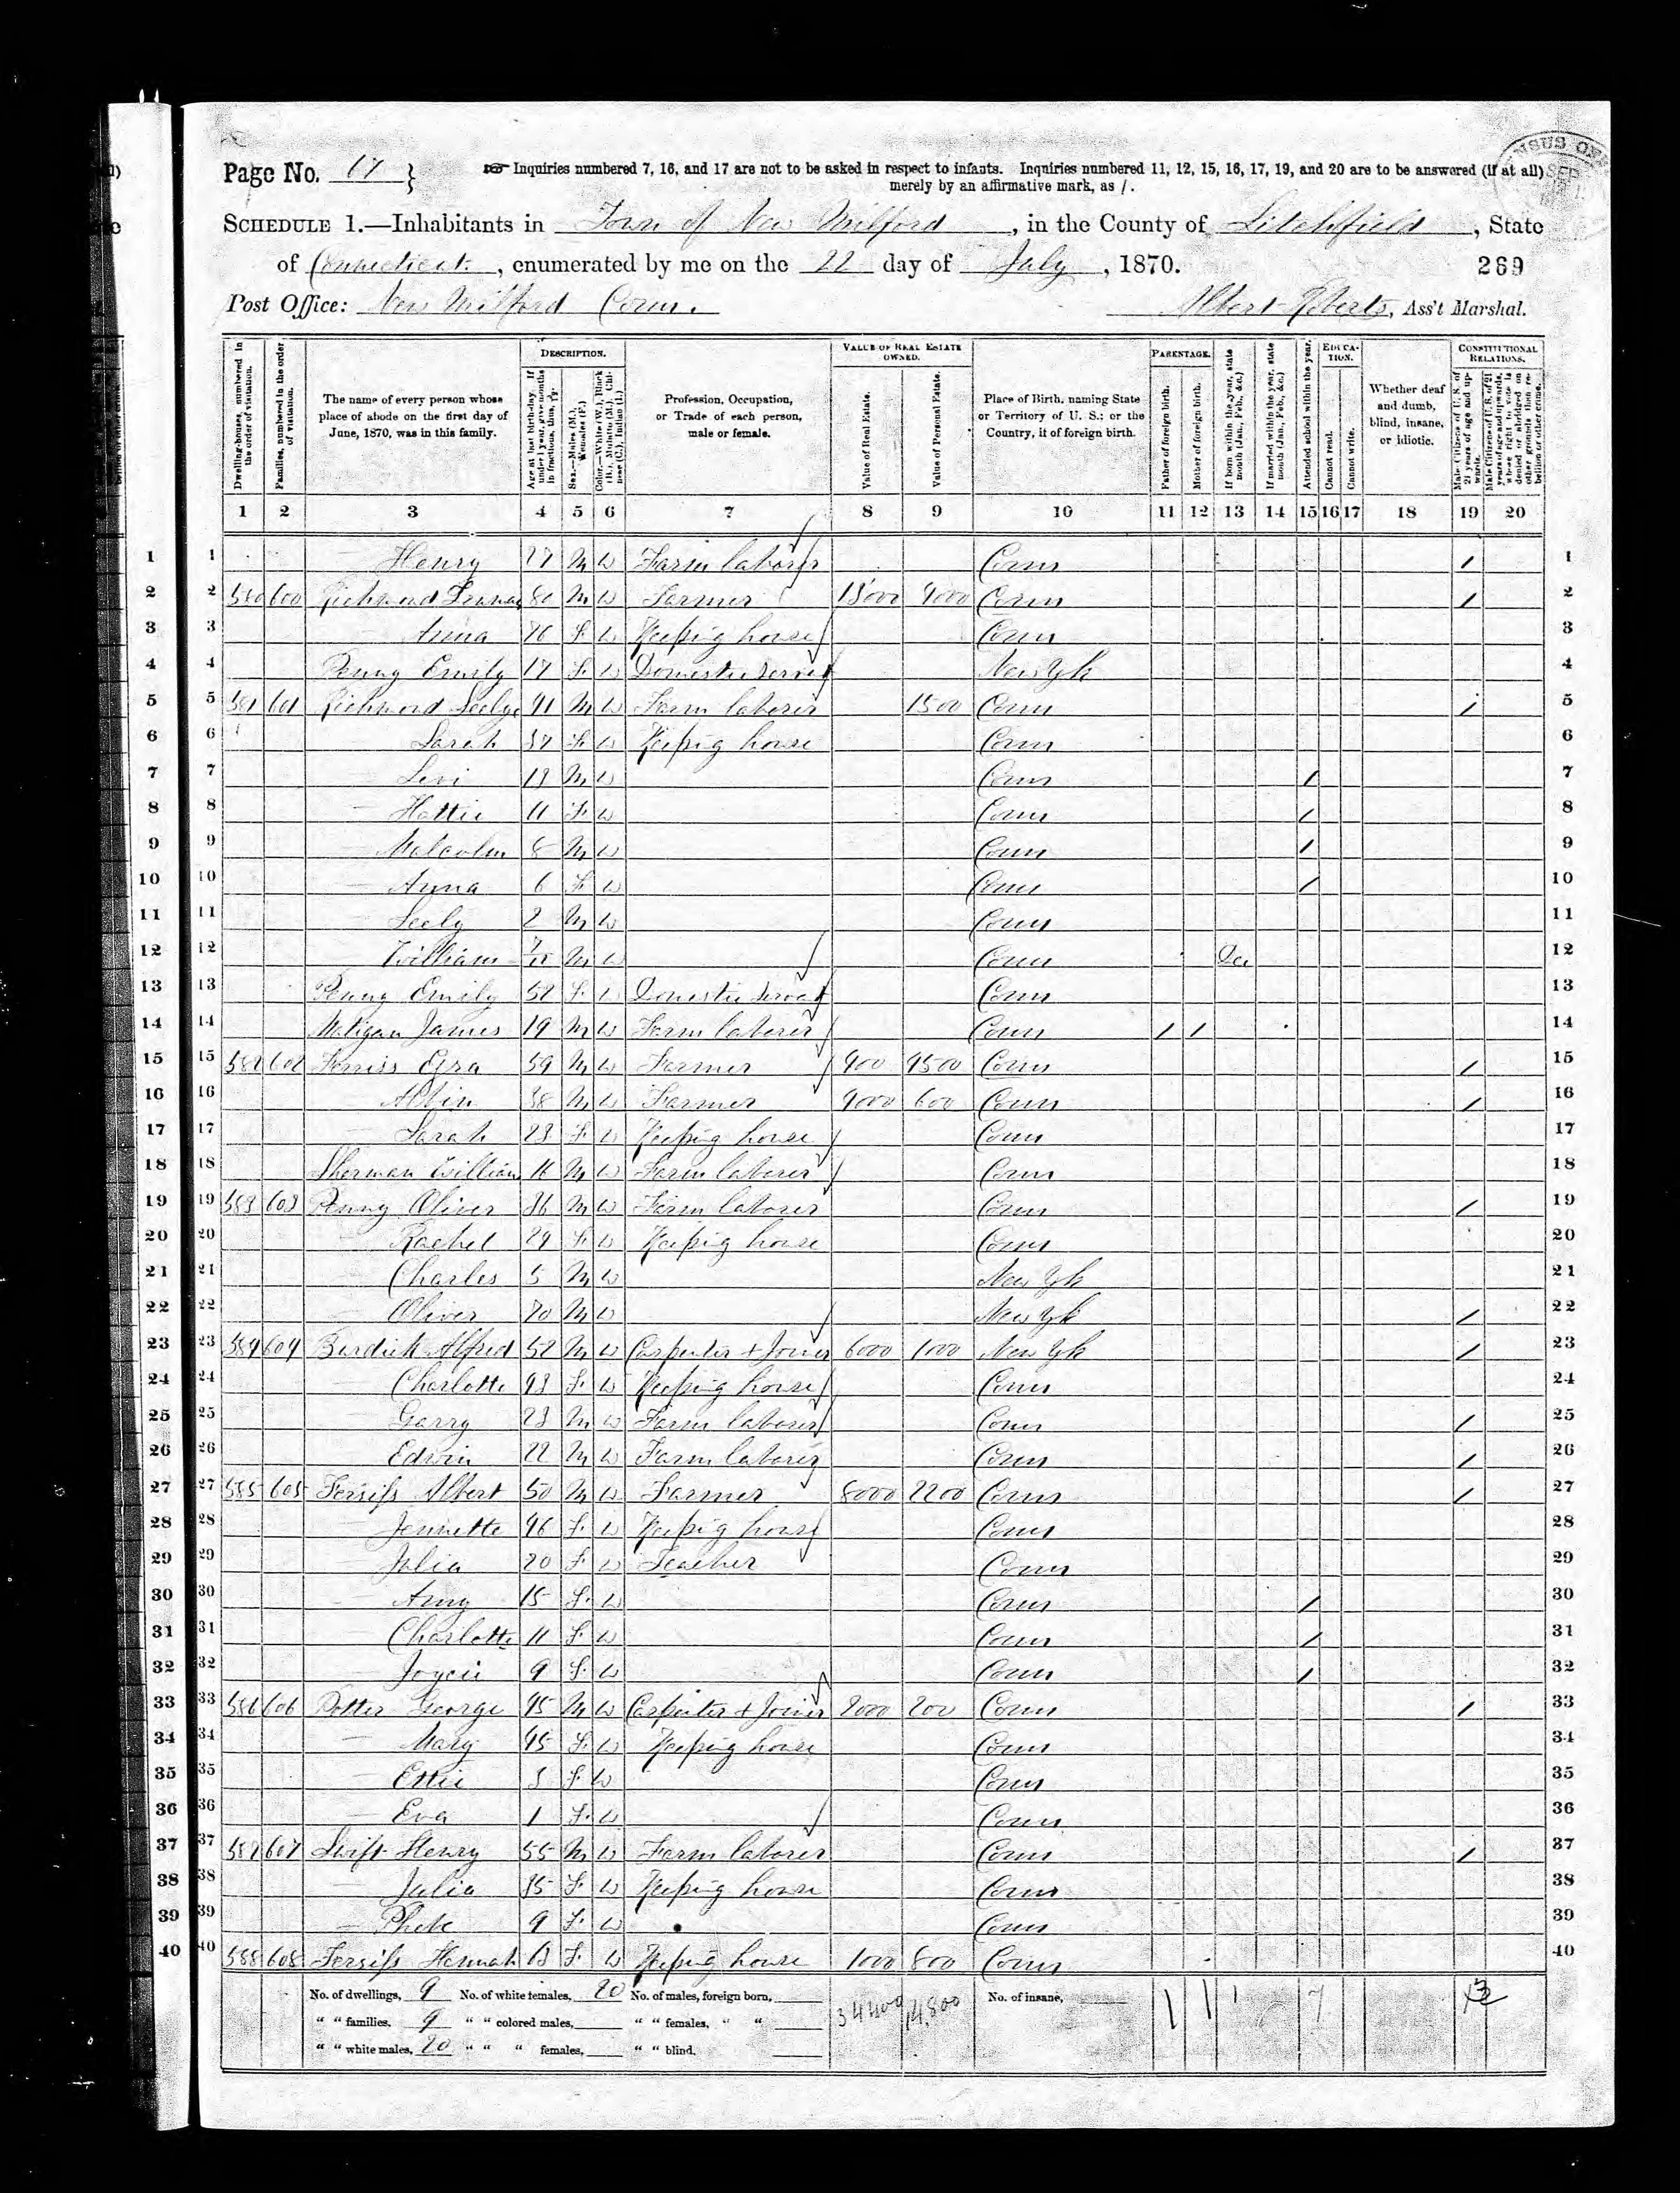 Page No. 17 }
☞ Inquiries numbered 7, 16, and 17 are not to be asked in respect to infants. Inquiries numbered 11, 12, 15, 16, 17, 19, and 20 are to be answered (if at all)
merely by an affirmative mark, as /.
SCHEDULE 1.—Inhabitants in Town of New Milford, in the County of Litchfield, State
of Connecticut, enumerated by me on the 22 day of July, 1870.
269
Post Office: New Milford Conn.
Albert Roberts, Ass't Marshal.
Dwelling-houses, numbered in the order of visitation.
Families, numbered in the order of visitation.
The name of every person whose place of abode on the first day of June, 1870, was in this family.
DESCRIPTION.
Age at last birth-day. If under 1 year, give months in fractions, thus, 3/12.
Sex.—Males (M.), Females (F.)
Color.—White (W.), Black (B.), Mulatto (M.), Chinese (C.), Indian (I.)
Profession, Occupation, or Trade of each person, male or female.
VALUE OF REAL ESTATE OWNED.
Value of Real Estate.
Value of Personal Estate.
Place of Birth, naming State or Territory of U. S.; or the Country, if of foreign birth.
PARENTAGE.
Father of foreign birth.
Mother of foreign birth.
If born within the year, state month (Jan., Feb., &c.)
If married within the year, state month (Jan., Feb., &c.)
Attended school within the year.
EDUCATION.
Cannot read.
Cannot write.
Whether deaf and dumb, blind, insane, or idiotic.
CONSTITUTIONAL RELATIONS.
Male Citizens of U. S. of 21 years of age and upwards.
Male Citizens of U. S. of 21 years of age and upwards, whose right to vote is denied or abridged on other grounds than rebellion or other crime.
1 2 3 4 5 6 7 8 9 10 11 12 13 14 15 16 17 18 19 20
1 1 — Henry 27 M W Farm laborer Conn / 1
2 2 580 600 Richmond M W Farmer Conn / 2
3 3 — Anna 76 F W Keepig house Conn 3
4 4 Penny Emily 17 F W Domestic servant New Yk 4
5 5 581 601 Richmond Seelye 41 M W Farm laborer 1500 Conn / 5
6 6 — Sarah 37 F W Keepig house Conn 6
7 7 — Levi 13 M W Conn / 7
8 8 — Hattie 11 F W Conn / 8
9 9 — Malcolm 8 M W Conn / 9
10 10 — Anna 6 F W Conn / 10
11 11 — Seely 2 M W Conn 11
12 12 — William M W Conn 12
13 13 Penny Emily 52 F W Domestic servant Conn 13
14 14 James 19 M W Farm laborer Conn / / 14
15 15 582 602 Ferriss Ezra 59 M W Farmer 400 4500 Conn / 15
16 16 — Albin 38 M W Farmer 4000 600 Conn / 16
17 17 — Sarah 23 F W Keeping house Conn 17
18 18 Sherman William 16 M W Farm laborer Conn 18
19 19 583 603 Penny Oliver 36 M W Farm laborer Conn / 19
20 20 — Rachel 29 F W Keepig house Conn 20
21 21 — Charles 5 M W New Yk 21
22 22 — Oliver 70 M W New Yk / 22
23 23 584 604 Burdick Alfred 52 M W Carpenter + Joiner 6000 1000 New Yk / 23
24 24 — Charlotte 43 F W Keeping house Conn 24
25 25 — Garry 23 M W Farm laborer Conn / 25
26 26 — Edwin 22 M W Farm laborer Conn / 26
27 27 585 605 Ferriss Albert 50 M W Farmer 8000 2200 Conn / 27
28 28 — Jennette 46 F W Keepig house Conn 28
29 29 — Julia 20 F W Teacher Conn 29
30 30 — Amy 15 F W Conn / 30
31 31 — Charlotte 11 F W Conn / 31
32 32 — Joycie 9 F W Conn / 32
33 33 586 606 Potter George 45 M W Carpenter + Joiner 2000 200 Conn / 33
34 34 — Mary 45 F W Keeping house Conn 34
35 35 — Ettie F W Conn 35
36 36 — Eva 1 F W Conn 36
37 37 587 607 Swift Henry 55 M W Farm laborer Conn / 37
38 38 — Julia 35 F W Keeping house Conn 38
39 39 — Phebe 9 F W Conn 39
40 40 588 608 Ferriss Hannah F W Keeping house 1000 800 Conn 40
No. of dwellings, 9 No. of white females, 20 No. of males, foreign born, 34400 14,800 No. of insane, 1 1 1 7 13
" " families, 9 " " colored males, " " females, " "
" " white males, 20 " " " females, " " blind.